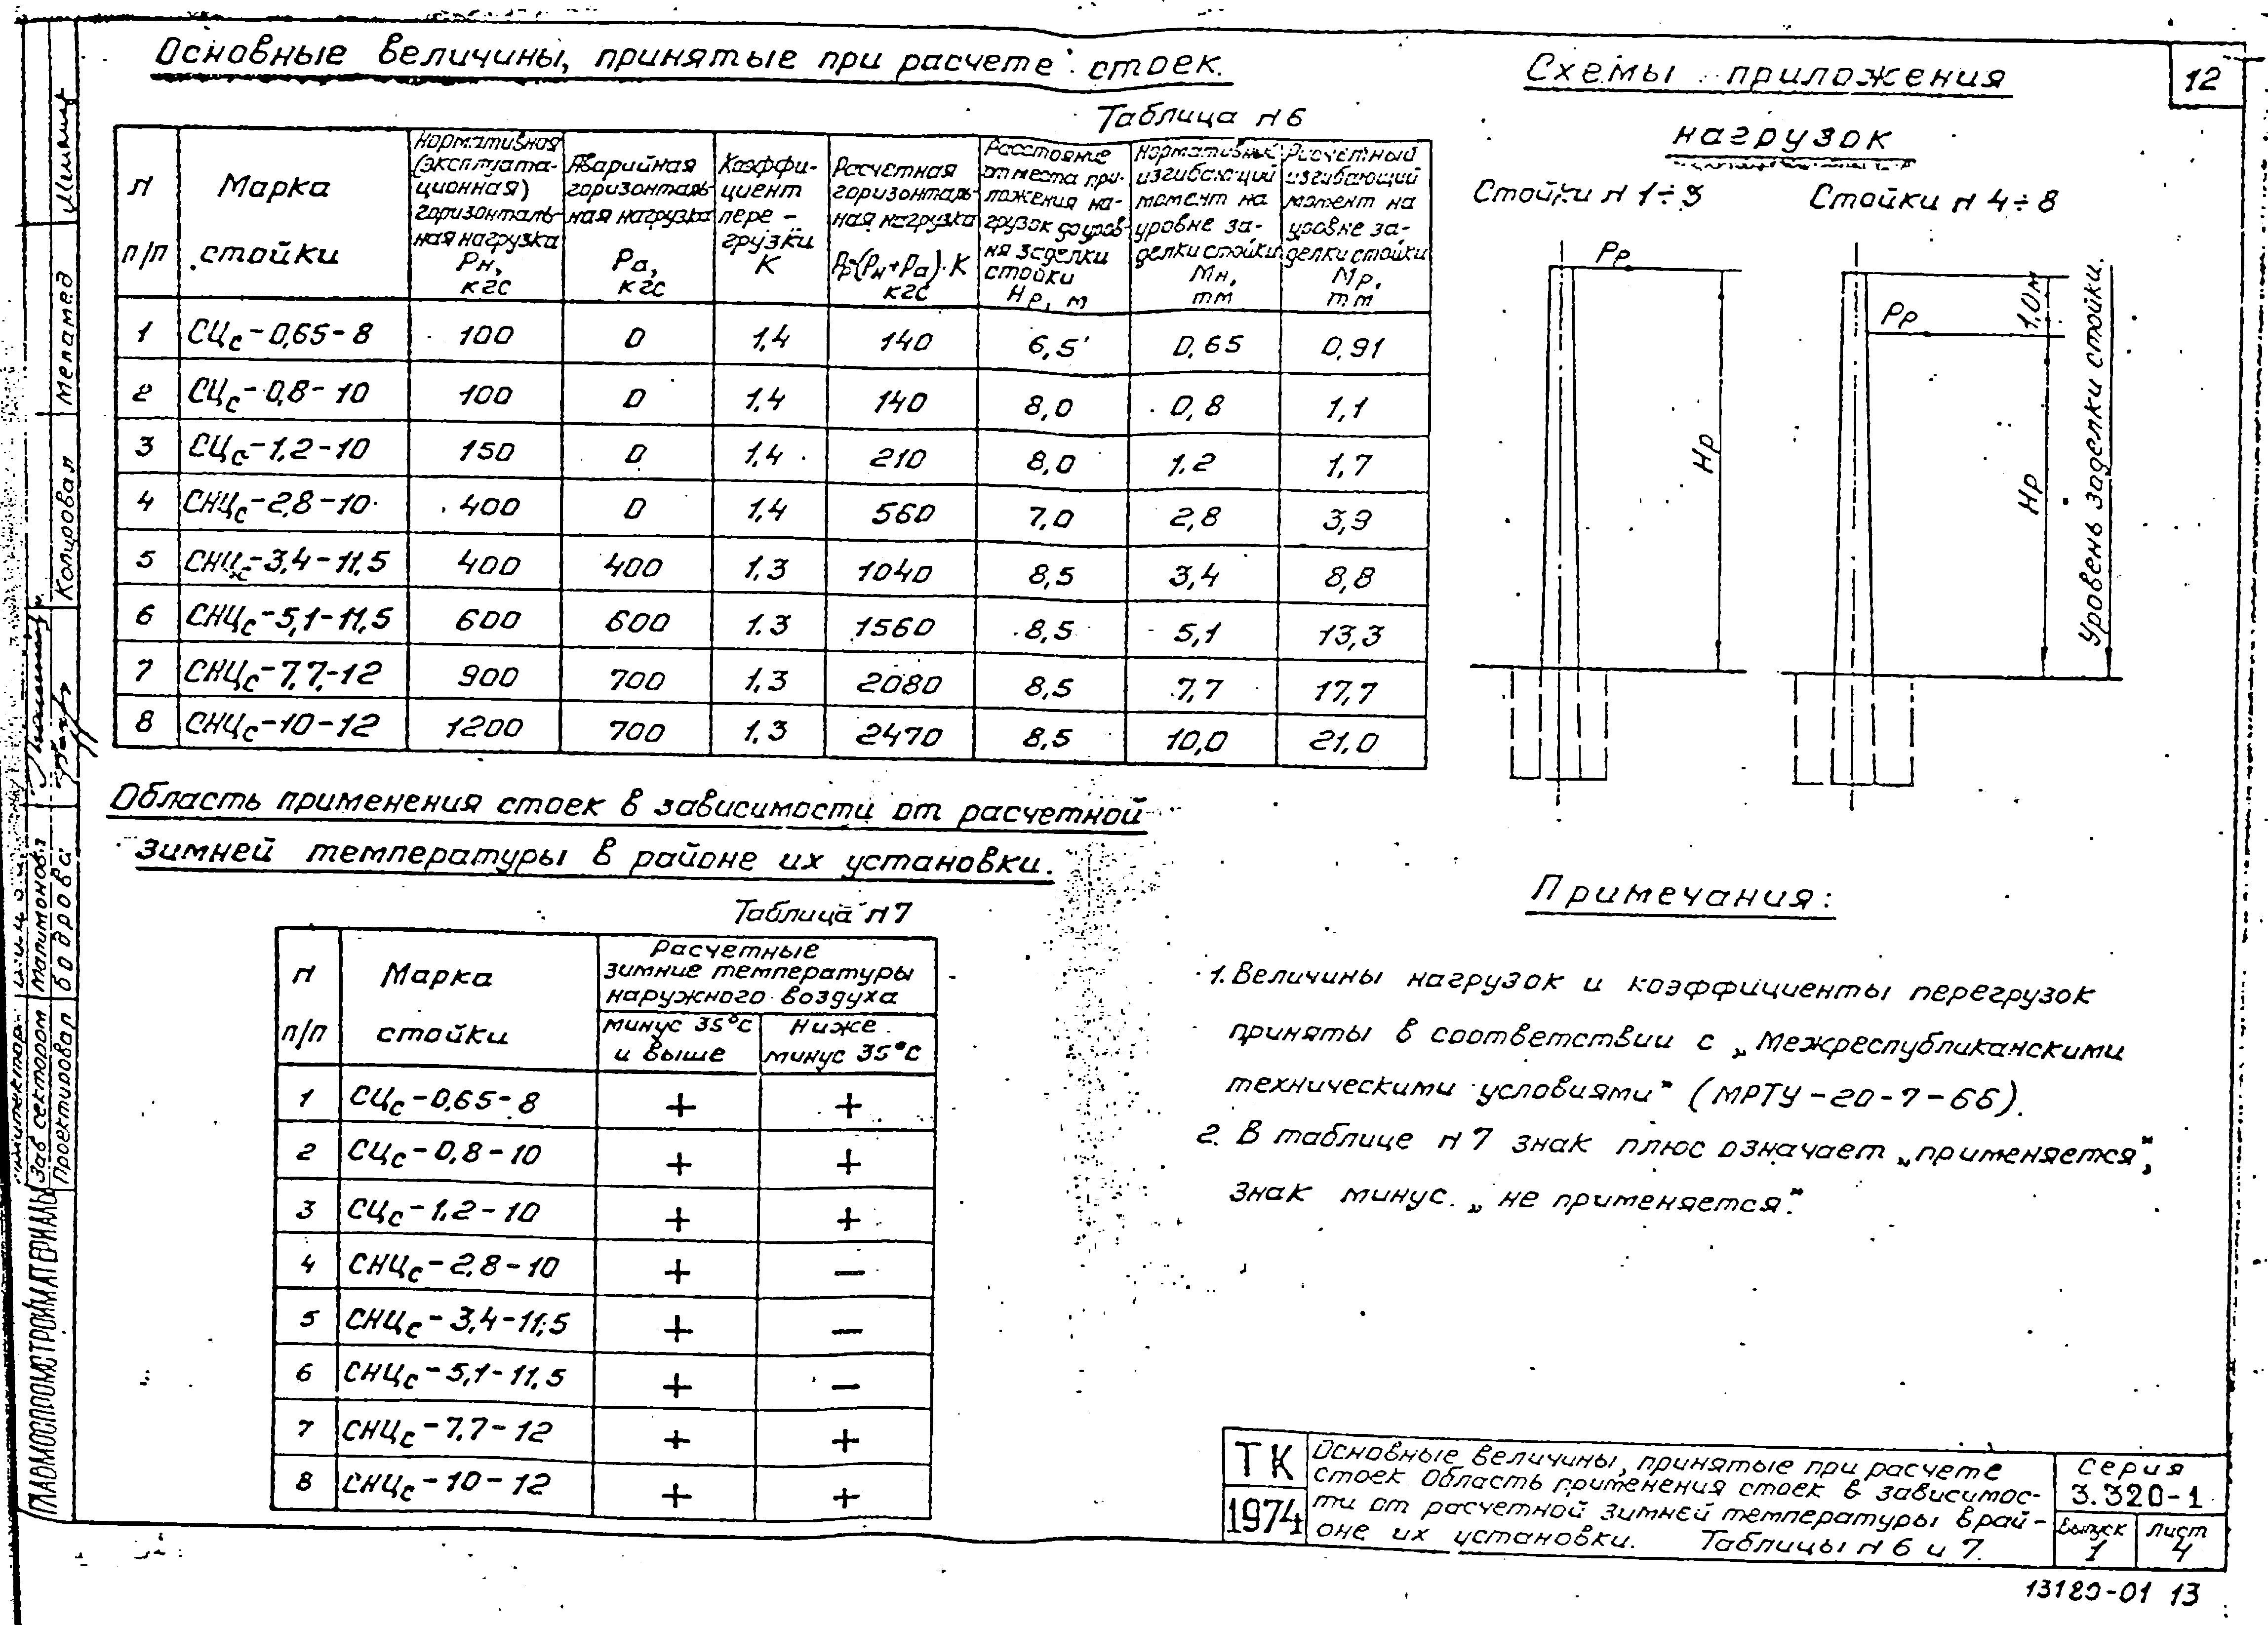 Основные величины, принятые при расчете стоек.
Таблица N 6
N п/п | Марка стойки | Нормативная (эксплуатационная) горизонтальная нагрузка Рн, кгс | Аварийная горизонтальная нагрузка Ра, кгс | Коэффициент перегрузки К | Расчетная горизонтальная нагрузка Рр=(Рн+Ра)·К кгс | Расстояние от места приложения нагрузок до уровня заделки стойки Нр, м | Нормативный изгибающий момент на уровне заделки стойки Мн, тм | Расчетный изгибающий момент на уровне заделки стойки Мр, тм
1 | СЦс-0,65-8 | 100 | 0 | 1,4 | 140 | 6,5 | 0,65 | 0,91
2 | СЦс-0,8-10 | 100 | 0 | 1,4 | 140 | 8,0 | 0,8 | 1,1
3 | СЦс-1,2-10 | 150 | 0 | 1,4 | 210 | 8,0 | 1,2 | 1,7
4 | СНЦс-2,8-10 | 400 | 0 | 1,4 | 560 | 7,0 | 2,8 | 3,9
5 | СНЦс-3,4-11,5 | 400 | 400 | 1,3 | 1040 | 8,5 | 3,4 | 8,8
6 | СНЦс-5,1-11,5 | 600 | 600 | 1.3 | 1560 | 8,5 | 5,1 | 13,3
7 | СНЦс-7,7-12 | 900 | 700 | 1,3 | 2080 | 8,5 | 7,7 | 17,7
8 | СНЦс-10-12 | 1200 | 700 | 1,3 | 2470 | 8,5 | 10,0 | 21,0
Схемы приложения
нагрузок
12
Стойки N 1÷3
Стойки N 4÷8
Рр
Нр
Рр
1,0м
Нр
Уровень заделки стойки.
Область применения стоек в зависимости от расчетной
зимней температуры в районе их установки.
Таблица N 7
N п/п | Марка стойки | Расчетные зимние температуры наружного воздуха
минус 35°С и выше | Ниже минус 35°С
1 | СЦс-0,65-8 | + | +
2 | СЦс-0,8-10 | + | +
3 | СЦс-1.2-10 | + | +
4 | СНЦс-2,8-10 | + | −
5 | СНЦс-3,4-11,5 | + | −
6 | СНЦс-5,1-11,5 | + | −
7 | СНЦс-7,7-12 | + | +
8 | СНЦс-10-12 | + | +
Примечания:
1. Величины нагрузок и коэффициенты перегрузок
приняты в соответствии с „Межреспубликанскими
техническими условиями" (МРТУ-20-7-66).
2. В таблице N 7 знак плюс означает „применяется",
знак минус „не применяется".
ТК
1974
Основные величины, принятые при расчете
стоек. Область применения стоек в зависимос-
ти от расчетной зимней температуры в рай-
оне их установки. Таблицы N 6 и 7.
Серия
3.320-1
Выпуск
1
Лист
4
13180-01 13
ГЛАВМОСПРОМСТРОЙМАТЕРИАЛЫ
Зав сектором
Проектировал
Бодрова
Копировал
Меламед